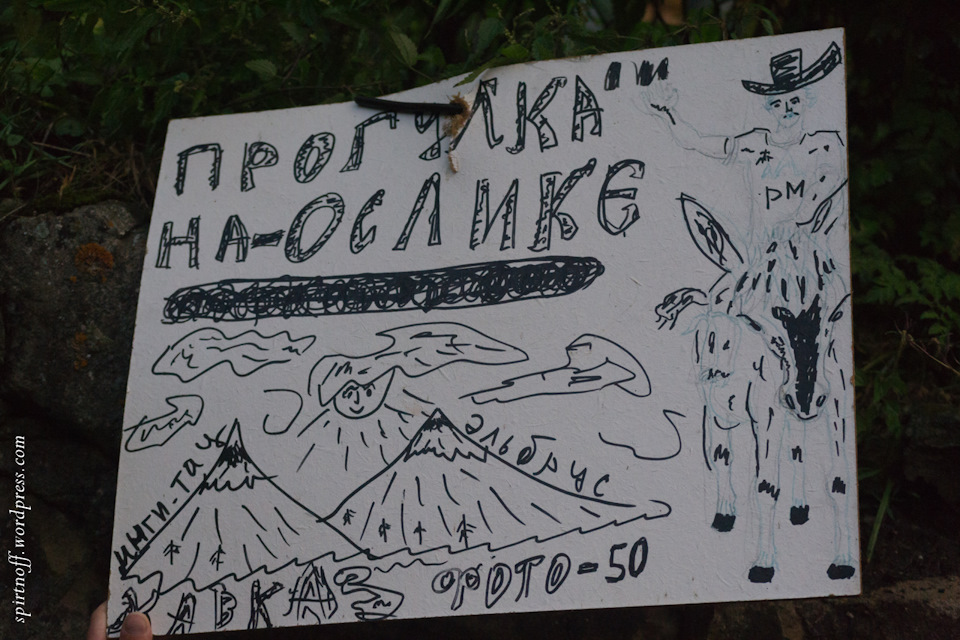 ПРОГУЛКА
НА-ОСЛИКЕ
РМ
ИНГИ-ТАУ
ЭЛЬБРУС
КАВКАЗ
ФОТО-50
spirtnoff.wordpress.com